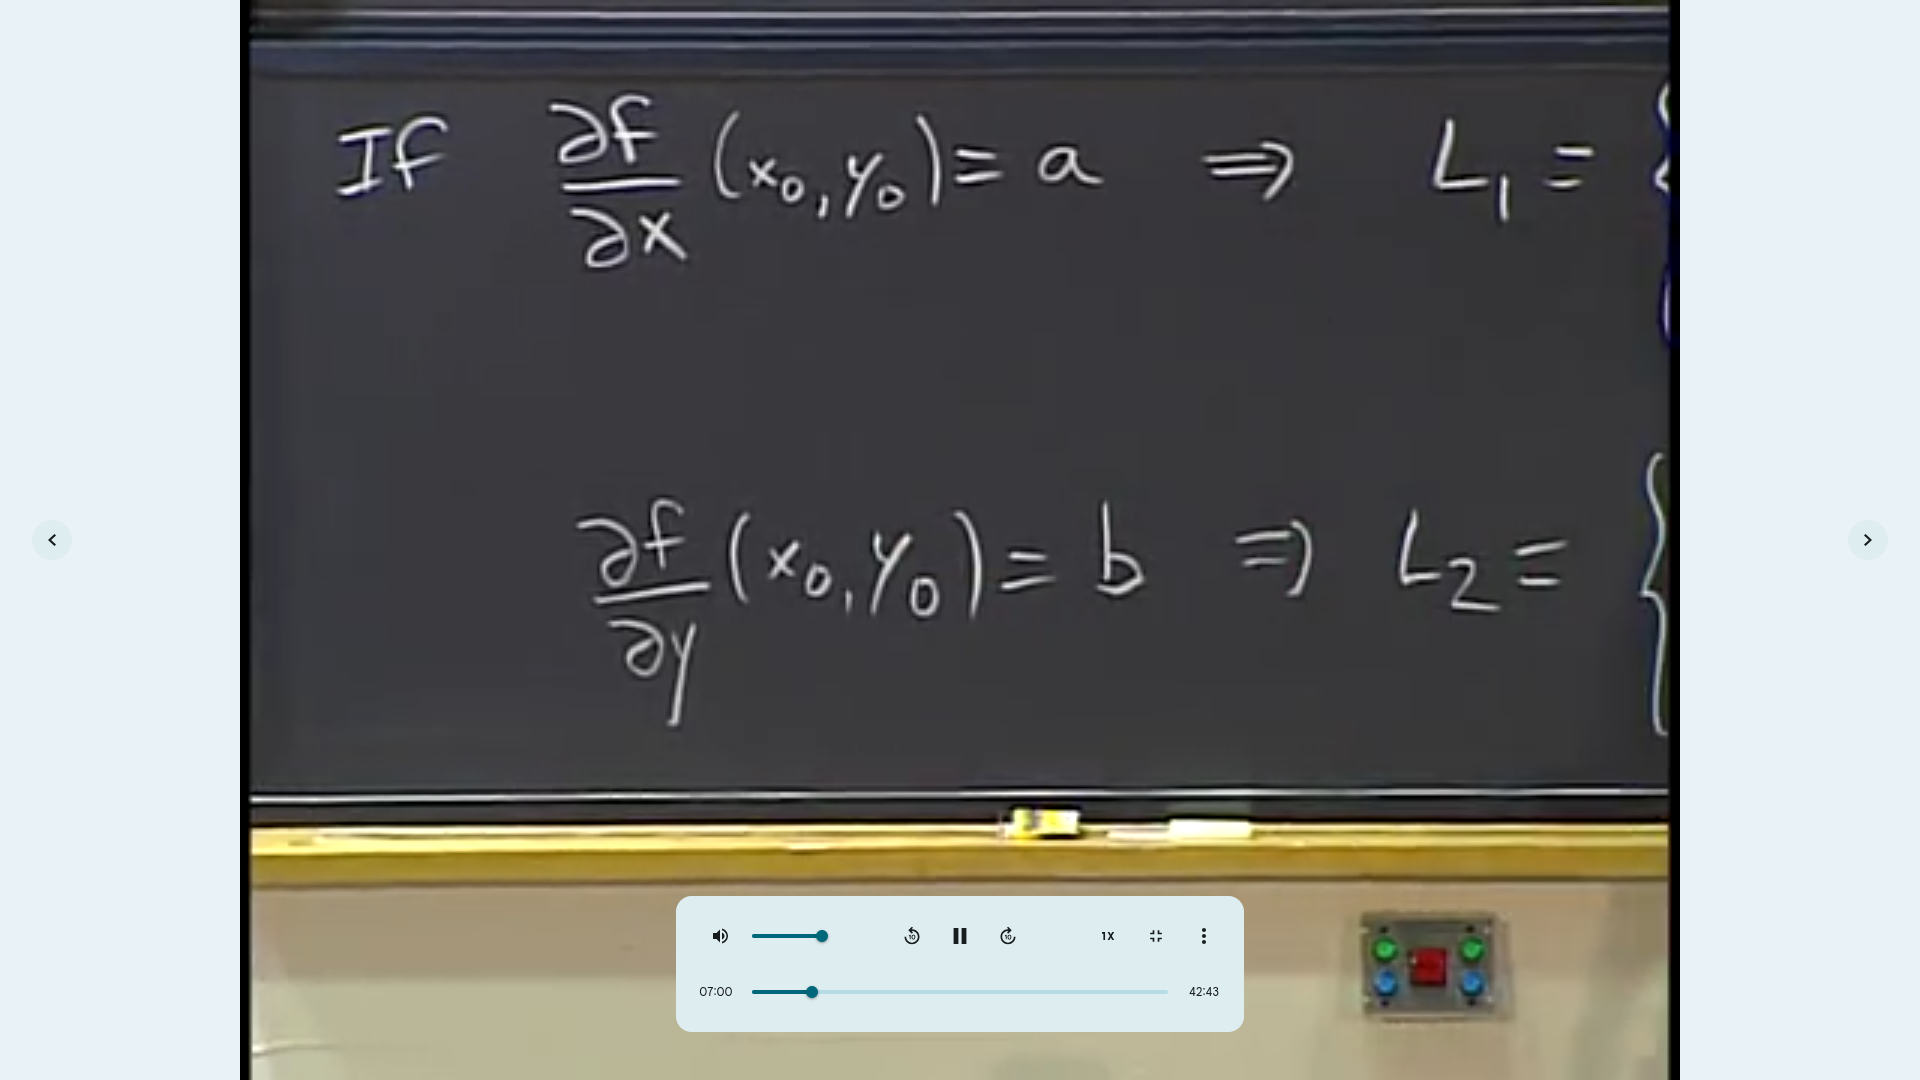 If ∂f/∂x (x₀, y₀) = a ⇒ L₁ = {
∂f/∂y (x₀, y₀) = b ⇒ L₂ = {
10
10
1X
07:00
42:43